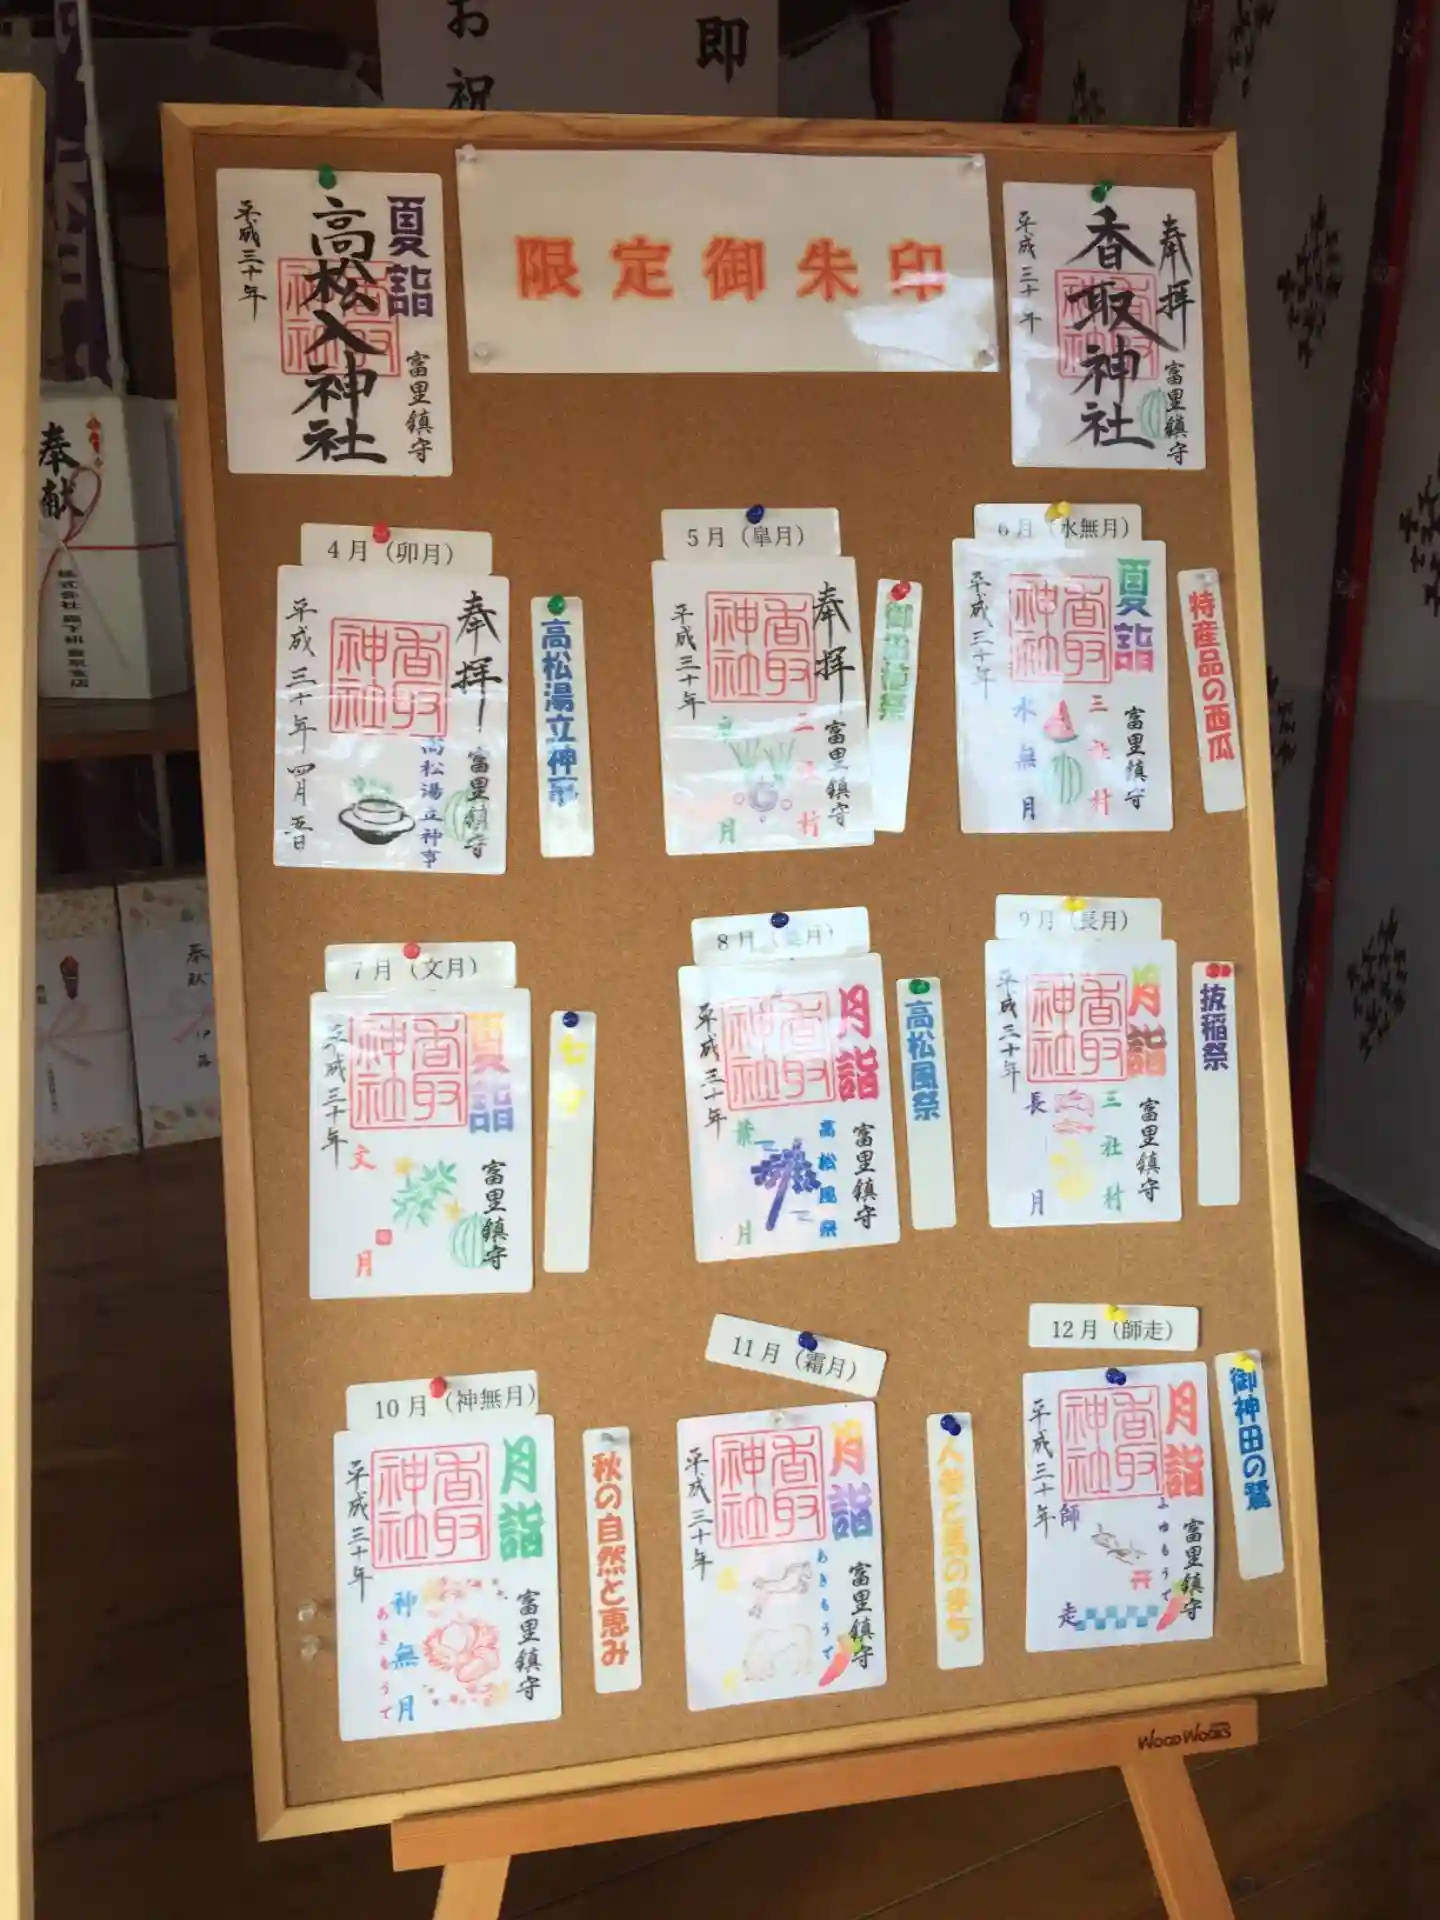 お祝
即
限定御朱印
夏詣
富里鎮守
高松入神社
香取神社
平成三十年
奉拝
富里鎮守
香取神社
香取神社
平成三十年
奉献
4月（卯月）
奉拝
富里鎮守
香取神社
高松湯立神事
平成三十年四月
高松湯立神事
5月（皐月）
奉拝
富里鎮守
香取神社
月
平成三十年
6月（水無月）
夏詣
富里鎮守
香取神社
三社村
水無月
平成三十年
特産品の西瓜
7月（文月）
夏詣
富里鎮守
香取神社
文月
平成三十年
七夕
8月（葉月）
月詣
富里鎮守
香取神社
高松風祭
葉月
平成三十年
高松風祭
9月（長月）
月詣
富里鎮守
香取神社
三社村
長月
平成三十年
抜稲祭
10月（神無月）
月詣
富里鎮守
香取神社
神無月
あきもうで
平成三十年
秋の自然と恵み
11月（霜月）
月詣
富里鎮守
香取神社
あきもうで
平成三十年
人参と馬のまち
12月（師走）
月詣
富里鎮守
香取神社
ふゆもうで
師走
平成三十年
御神田の鷺
奉献
WOODWORKS